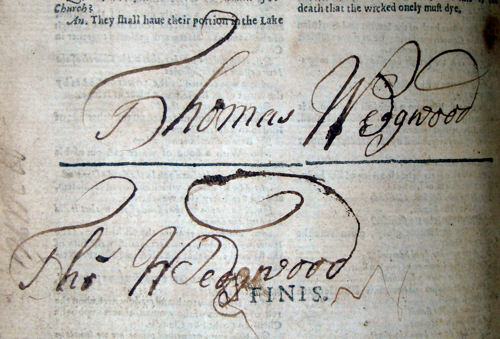 Church?
death that the wicked onely must dye,
An. They shall haue their portion in the Lake
Thomas Wedgwood
Tho Wedgwood
FINIS.